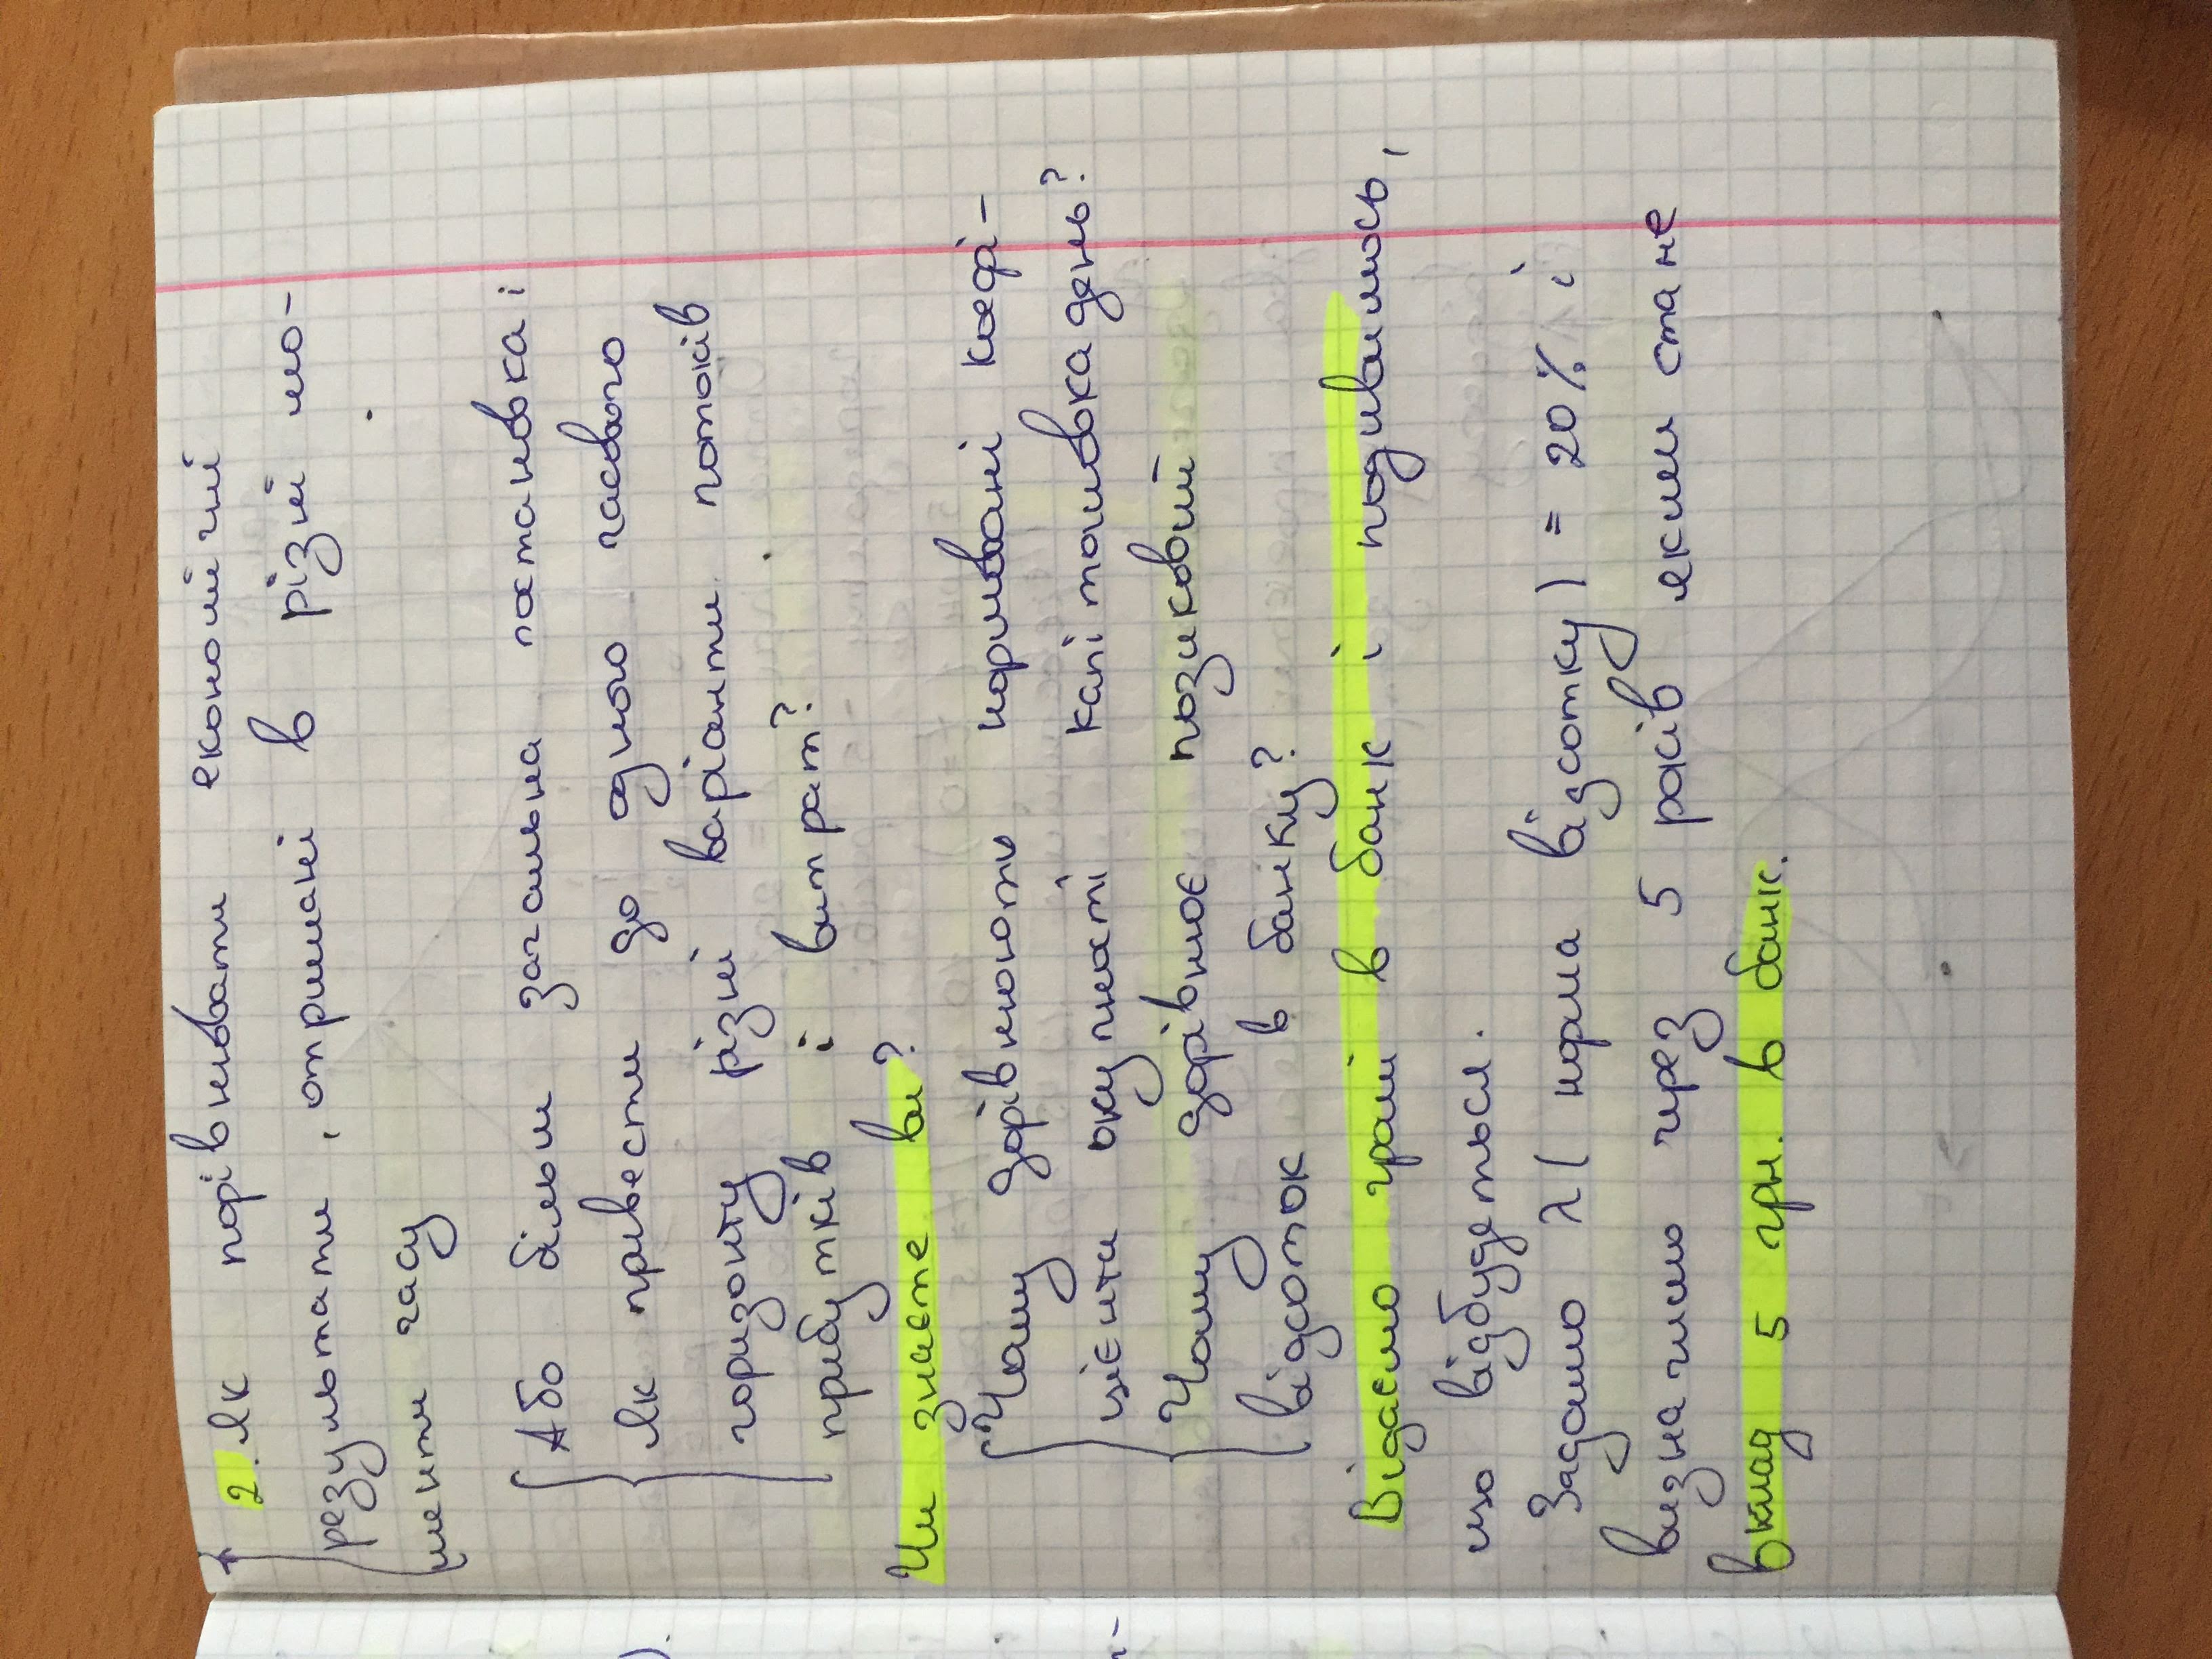 2. Як порівнювати економічні
результати, отримані в різні мо-
менти часу
Або більш загальна постановка:
Як привести до одного часового
горизонту різні варіанти потоків
прибутків і витрат?
Чи знаєте ви?
Чому дорівнюють нормовані коефі-
цієнти окупності капіталовкадень?
Чому дорівнює позиковий
відсоток в банку?
Відаємо гроші в банк і подивимось,
що відбудеться.
Задамо λ( норма відсотку) = 20% і
визначимо через 5 років яким стане
вклад 5 грн. в банк.